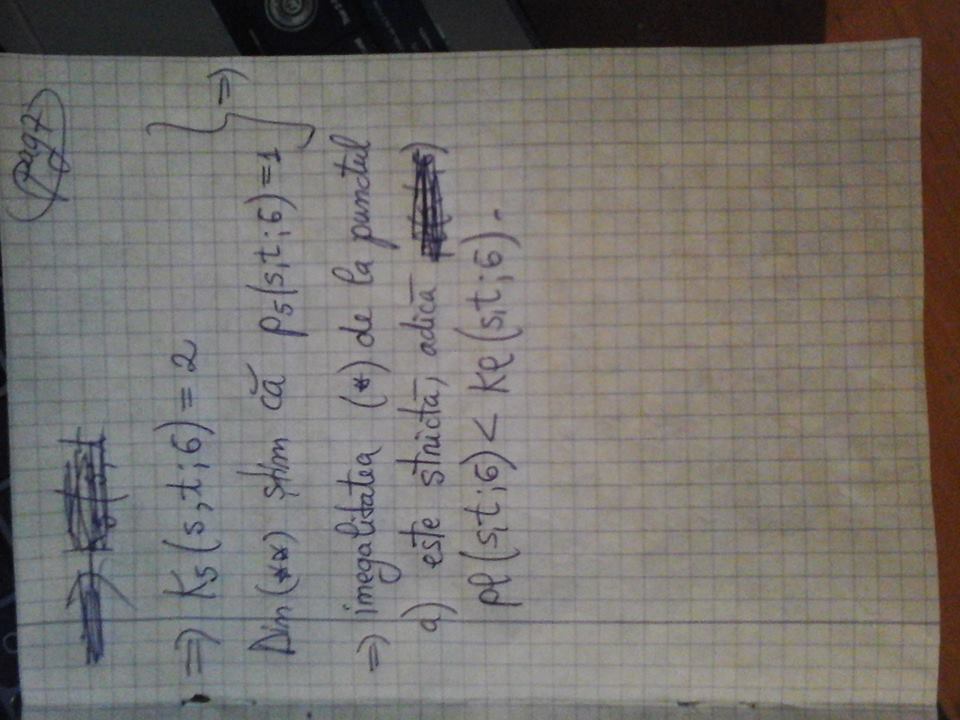 pag 7
=> K5 (s,t;6) = 2
Din (**) știm că p5(s,t;6)=1 } =>
=> inegalitatea (*) de la punctul
a) este strictă, adică
pl (s,t;6) < kl (s,t;6).